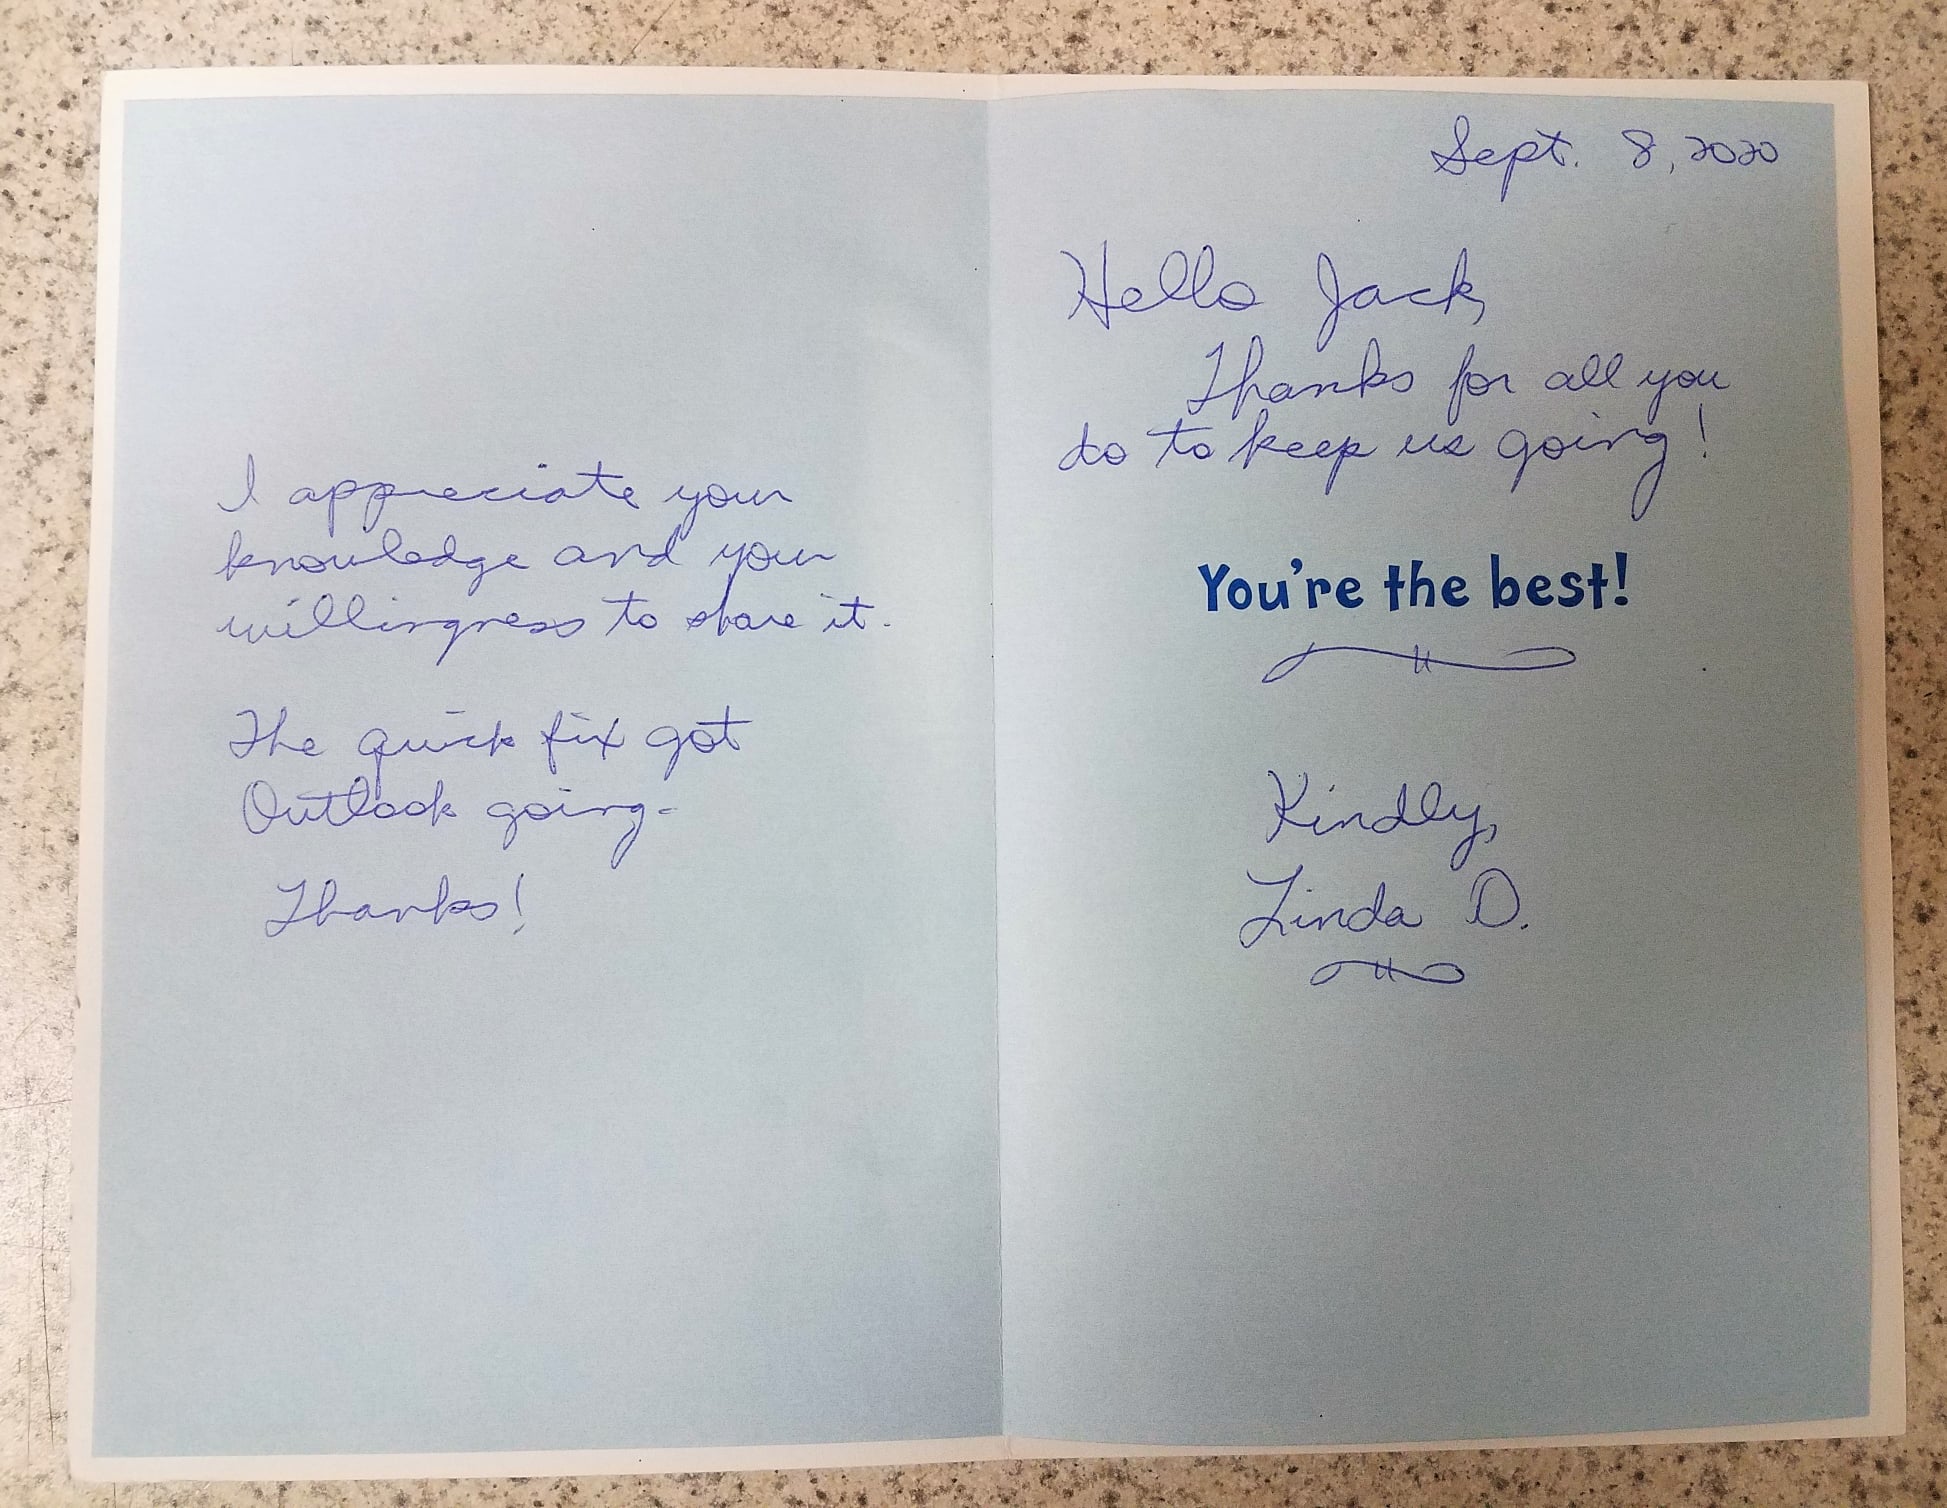 I appreciate your
knowledge and your
willingness to share it.
The quick fix got
Outlook going-
Thanks!
Sept. 8, 2020
Hello Jack,
Thanks for all you
do to keep us going!
You're the best!
Kindly,
Linda D.